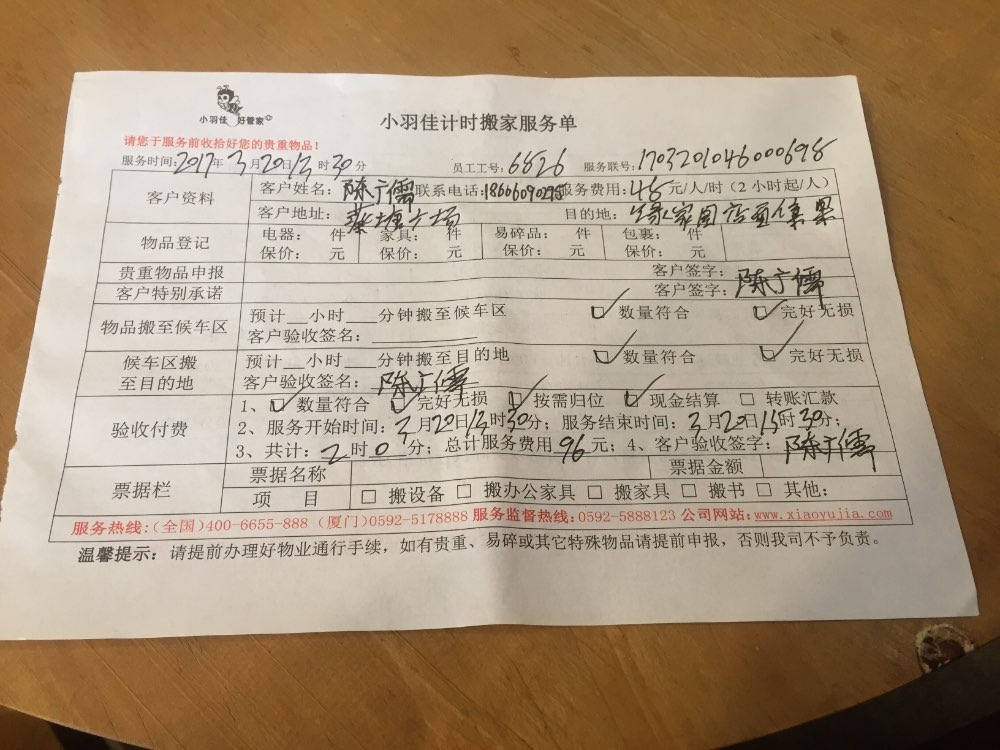 小羽佳 好管家
小羽佳计时搬家服务单
请您于服务前收拾好您的贵重物品！
服务时间：2017年3月20日13时30分 员工工号：6826 服务联号：1703201046000698
客户资料 客户姓名：陈广儒 联系电话：18606090295 服务费用：48元/人/时（2小时起/人）
客户地址：蔡塘广场 目的地：绿家园店面集果
物品登记 电器： 件 家具： 件 易碎品： 件 包裹： 件
保价： 元 保价： 元 保价： 元 保价： 元
贵重物品申报 客户签字：
客户特别承诺 客户签字：陈广儒
物品搬至候车区 预计__小时___分钟搬至候车区 ☑数量符合 ☑完好无损
客户验收签名：
候车区搬至目的地 预计__小时___分钟搬至目的地 ☑数量符合 ☑完好无损
客户验收签名：陈广儒
验收付费 1、☑数量符合 ☑完好无损 ☑按需归位 ☑现金结算 □转账汇款
2、服务开始时间：3月20日13时30分；服务结束时间：3月20日15时30分；
3、共计：2时0分；总计服务费用96元；4、客户验收签字：陈广儒
票据栏 票据名称 票据金额
项 目 □搬设备 □搬办公家具 □搬家具 □搬书 □其他：
服务热线：（全国）400-6655-888（厦门）0592-5178888 服务监督热线：0592-5888123 公司网站：www.xiaoyujia.com
温馨提示：请提前办理好物业通行手续，如有贵重、易碎或其它特殊物品请提前申报，否则我司不予负责。